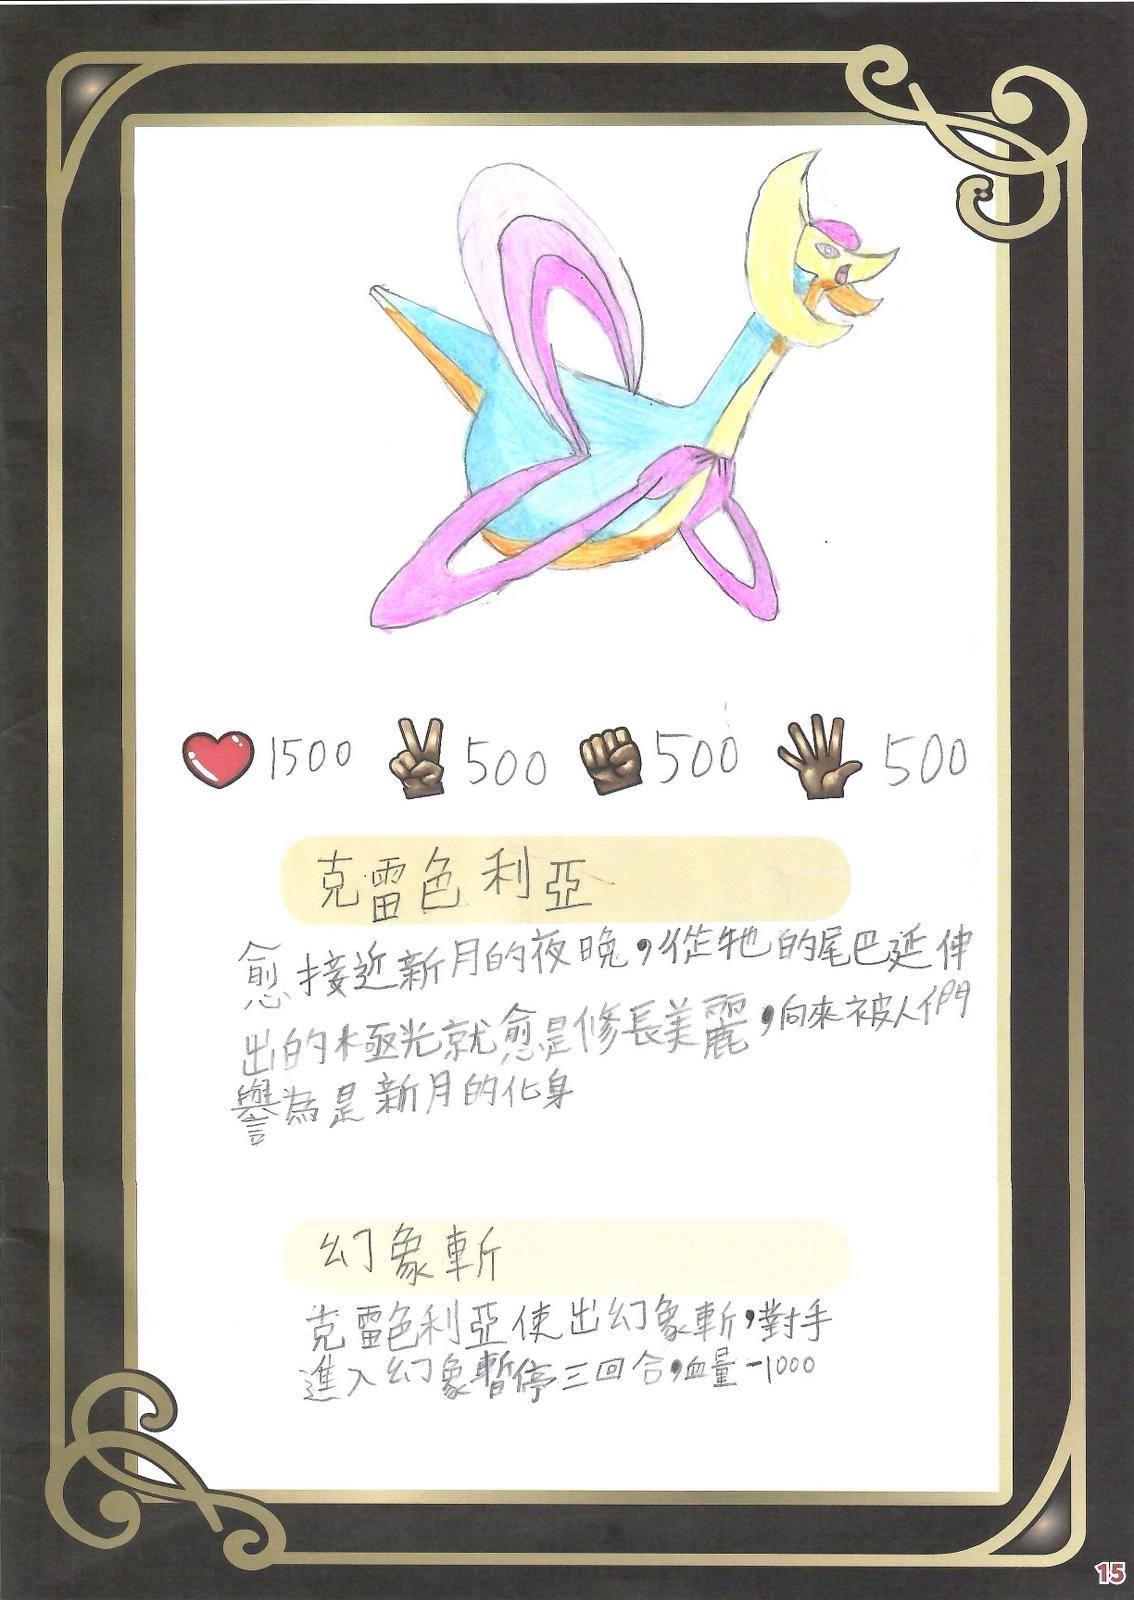 1500 500 500 500
克雷色利亞
愈接近新月的夜晚，從牠的尾巴延伸
出的極光就愈是修長美麗，向來被人們
譽為是新月的化身
幻象斬
克雷色利亞使出幻象斬，對手
進入幻象暫停三回合，血量-1000
15